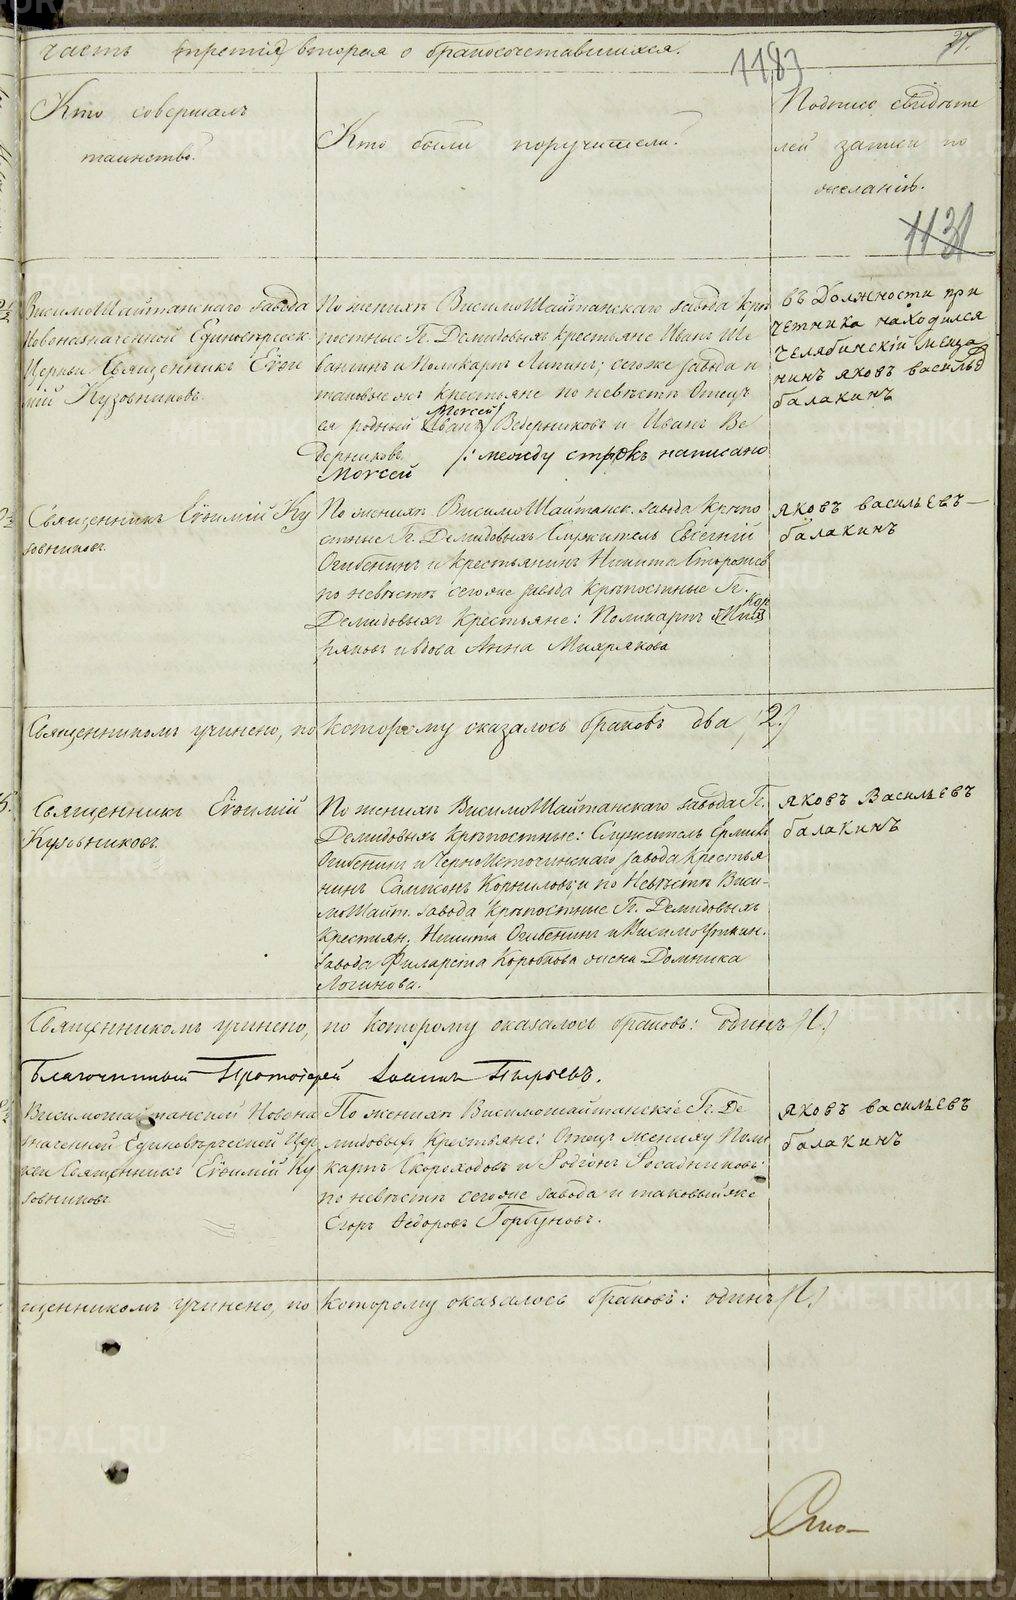 часть третія вторая о бракосочетавшихся.
1183
37.
Кто совершалъ
таинство.
Кто были поручители.
Подпись свидѣте
лей записи по
желанію.
1131
ВисимоШайтанскаго завода
Новоназначенной Единовѣрческ.
Церкви Священникъ Евѳи
мій Кузовниковъ.
По женихѣ ВисимоШайтанскаго завода крѣ
постные Гг. Демидовыхъ крестьяне Иванъ Ше
и Поликарпъ Липинъ; сегоже завода и
таковые жъ крестьяне по невѣстѣ Отецъ
ея родный Иванъ Моисей Ведерниковъ и Иванъ Ве
дерниковъ.
Моисей /: между строкъ написано
въ Должности при
четника находился
Челябинскій меща
нинъ яковъ васильев
балакинъ
Священникъ Евѳимій Ку
зовниковъ.
По женихѣ ВисимоШайтанск. завода крѣпо
стные Гг. Демидовыхъ Служитель Евгений
Огибенинъ и крестьянинъ Никита Сторожев
по невѣстѣ сегоже завода Крѣпостные Гг.
Демидовыхъ Крестьяне: Поликарпъ
и вдова Анна Михрякова
яковъ васильевъ
балакинъ
Священникомъ учинено, по которому оказалось браковъ два /2./
Священникъ Евѳимій
Кузовниковъ.
По женихѣ ВисимоШайтанскаго завода Гг.
Демидовыхъ крѣпостные: Служитель Ермилъ
Огибенинъ и ЧерноИсточинскаго завода Крестья
нинъ Самсонъ Корниловъ; и по Невѣстѣ Виси-
моШайт. завода Крѣпостные Гг. Демидовыхъ
Крестьян. Никита Огибенинъ и ВисимоУткин.
завода Филарета Коробкова жена Домника
Логинова.
яковъ Васильевъ
балакинъ
Священникомъ учинено, по которому оказалось браковъ: одинъ /1./
Благочинный Протоіерей Іоаннъ Пырьевъ.
Висимошайтанской Новона
значенной Единовѣрческой Цер
кви Священникъ Евѳимій Ку
зовниковъ.
По женихѣ Висимошайтанскіе Гг. Де
мидовыхъ Крестьяне: Отецъ жениху Поли
карпъ Скороходовъ и Родіонъ Росадниковъ.
по невѣстѣ сегоже завода и таковый же
Егоръ Ѳедоровъ Горбуновъ.
яковъ васильевъ
балакинъ
щенникомъ учинено, по которому оказалось браковъ: одинъ /1./
METRIKI.GASO-URAL.RU